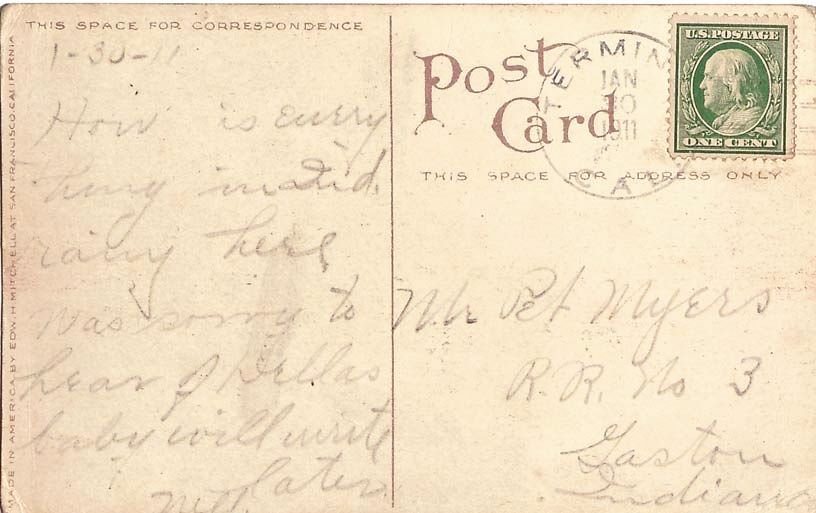 THIS SPACE FOR CORRESPONDENCE
1-30-11
How is every
thing in Ind.
rainy here
was sorry to
hear of Dellas
baby will write
later
MADE IN AMERICA BY EDW. H. MITCHELL AT SAN FRANCISCO, CALIFORNIA
Post
Card
THIS SPACE FOR ADDRESS ONLY
TERMIN
JAN
30
1911
CAL
U.S. POSTAGE
ONE CENT
Mr Pet Myers
R.R. No 3
Gaston
Indiana